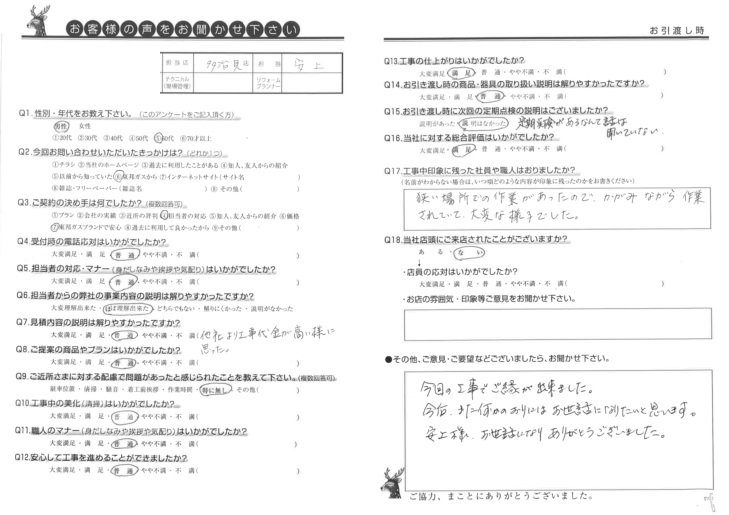 お客様の声をお聞かせ下さい
担当店 多治見店 担当 安上
テクニカル(現場管理) リフォームプランナー
Q1.性別・年代をお教え下さい。(このアンケートをご記入頂く方)
男性 女性
①20代 ②30代 ③40代 ④50代 ⑤60代 ⑥70才以上
Q2.今回お問い合わせいただいたきっかけは?(どれか1つ)
①チラシ ②当社のホームページ ③過去に利用したことがある ④知人、友人からの紹介
⑤以前から知っていた ⑥東邦ガスから ⑦インターネットサイト(サイト名 )
⑧雑誌・フリーペーパー(雑誌名 ) ⑨その他( )
Q3.ご契約の決め手は何でしたか?(複数回答可)
①プラン ②会社の実績 ③近所の評判 ④担当者の対応 ⑤知人、友人からの紹介 ⑥価格
⑦東邦ガスブランドで安心 ⑧過去に利用して良かったから ⑨その他( )
Q4.受付時の電話応対はいかがでしたか?
大変満足・満 足・普 通・やや不満・不 満( )
Q5.担当者の対応・マナー(身だしなみや挨拶や気配り)はいかがでしたか?
大変満足・満 足・普 通・やや不満・不 満( )
Q6.担当者からの弊社の事業内容の説明は解りやすかったですか?
大変理解出来た・ほぼ理解出来た・どちらでもない・解りにくかった・説明がなかった
Q7.見積内容の説明は解りやすかったですか?
大変満足・満 足・普 通・やや不満・不 満( 他社より工事代金が高い様に
思った。
Q8.ご提案の商品やプランはいかがでしたか?
大変満足・満 足・普 通・やや不満・不 満( )
Q9.ご近所さまに対する配慮で問題があったと感じられたことを教えて下さい。(複数回答可)
駐車位置・清掃・騒音・着工前挨拶・作業時間・特に無し・その他( )
Q10.工事中の美化(清掃)はいかがでしたか?
大変満足・満 足・普 通・やや不満・不 満( )
Q11.職人のマナー(身だしなみや挨拶や気配り)はいかがでしたか?
大変満足・満 足・普 通・やや不満・不 満( )
Q12.安心して工事を進めることができましたか?
大変満足・満 足・普 通・やや不満・不 満( )
お引渡し時
Q13.工事の仕上がりはいかがでしたか?
大変満足・満 足・普 通・やや不満・不 満( )
Q14.お引き渡し時の商品・器具の取り扱い説明は解りやすかったですか?
大変満足・満 足・普 通・やや不満・不 満( )
Q15.お引き渡し時に次回の定期点検の説明はございましたか?
説明があった・説明はなかった( 定期点検があるなんて話は
聞いていない。
Q16.当社に対する総合評価はいかがでしたか?
大変満足・満 足・普 通・やや不満・不 満( )
Q17.工事中印象に残った社員や職人はおりましたか?
(名前がわからない場合は、いつ頃どのような内容が印象に残ったのかをお書きください)
狭い場所での作業があったので、かがみながら作業
されていて、大変な様子でした。
Q18.当社店頭にご来店されたことがございますか?
ある・ない
・店員の応対はいかがでしたか?
大変満足・満 足・普 通・やや不満・不 満( )
・お店の雰囲気・印象等ご意見をお聞かせ下さい。
●その他、ご意見・ご要望などございましたら、お聞かせ下さい。
今回の工事でご縁が出来ました。
今后、また何かのおりにはお世話になりたいと思います。
安上様、お世話になりありがとうございました。
ご協力、まことにありがとうございました。